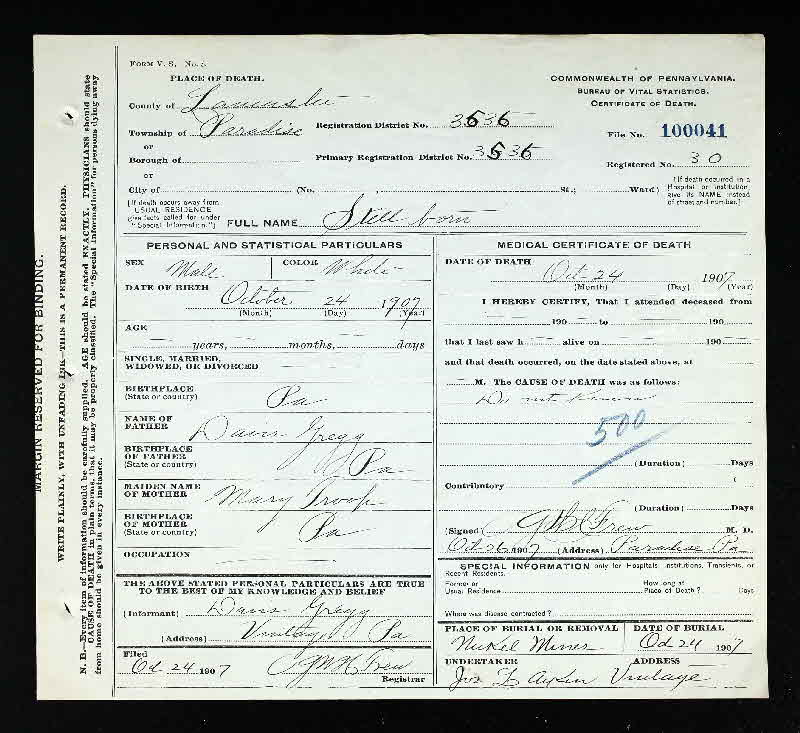 FORM V. S. No. 5.
PLACE OF DEATH.
County of Lancaster
Township of Paradise
or
Borough of
or
City of (No. , St.; Ward)
[If death occurs away from USUAL RESIDENCE give facts called for under "Special Information."]
COMMONWEALTH OF PENNSYLVANIA.
BUREAU OF VITAL STATISTICS.
CERTIFICATE OF DEATH.
Registration District No. 3536
Primary Registration District No. 3536
File No. 100041
Registered No. 30
[If death occurred in a Hospital or Institution give its NAME instead of street and number.]
FULL NAME Still born
PERSONAL AND STATISTICAL PARTICULARS
SEX Male COLOR White
DATE OF BIRTH October 24 1907
(Month) (Day) (Year)
AGE
years, months, days
SINGLE, MARRIED,
WIDOWED, OR DIVORCED
BIRTHPLACE
(State or country) Pa
NAME OF
FATHER Davis Gregg
BIRTHPLACE
OF FATHER
(State or country) Pa
MAIDEN NAME
OF MOTHER Mary Troop
BIRTHPLACE
OF MOTHER
(State or country) Pa
OCCUPATION
THE ABOVE STATED PERSONAL PARTICULARS ARE TRUE
TO THE BEST OF MY KNOWLEDGE AND BELIEF
(Informant) Davis Gregg
(Address) Vintage, Pa
Filed
Oct 24 1907
Registrar
MEDICAL CERTIFICATE OF DEATH
DATE OF DEATH
Oct 24 1907
(Month) (Day) (Year)
I HEREBY CERTIFY, That I attended deceased from
190 to 190
that I last saw h alive on 190
and that death occurred, on the date stated above, at
M. The CAUSE OF DEATH was as follows:
500
(Duration) Days
Contributory
(Duration) Days
(Signed) M. D.
Oct 26 1907 (Address) Paradise Pa
SPECIAL INFORMATION only for Hospitals, Institutions, Transients, or
Recent Residents.
Former or
Usual Residence
How long at
Place of Death? Days
Where was disease contracted?
PLACE OF BURIAL OR REMOVAL
Nickel Mines
DATE OF BURIAL
Oct 24 1907
UNDERTAKER
ADDRESS
Vintage
MARGIN RESERVED FOR BINDING.
WRITE PLAINLY, WITH UNFADING INK—THIS IS A PERMANENT RECORD.
N. B.—Every item of information should be carefully supplied. AGE should be stated EXACTLY. PHYSICIANS should state
CAUSE OF DEATH in plain terms, that it may be properly classified. The "Special Information" for persons dying away
from home should be given in every instance.